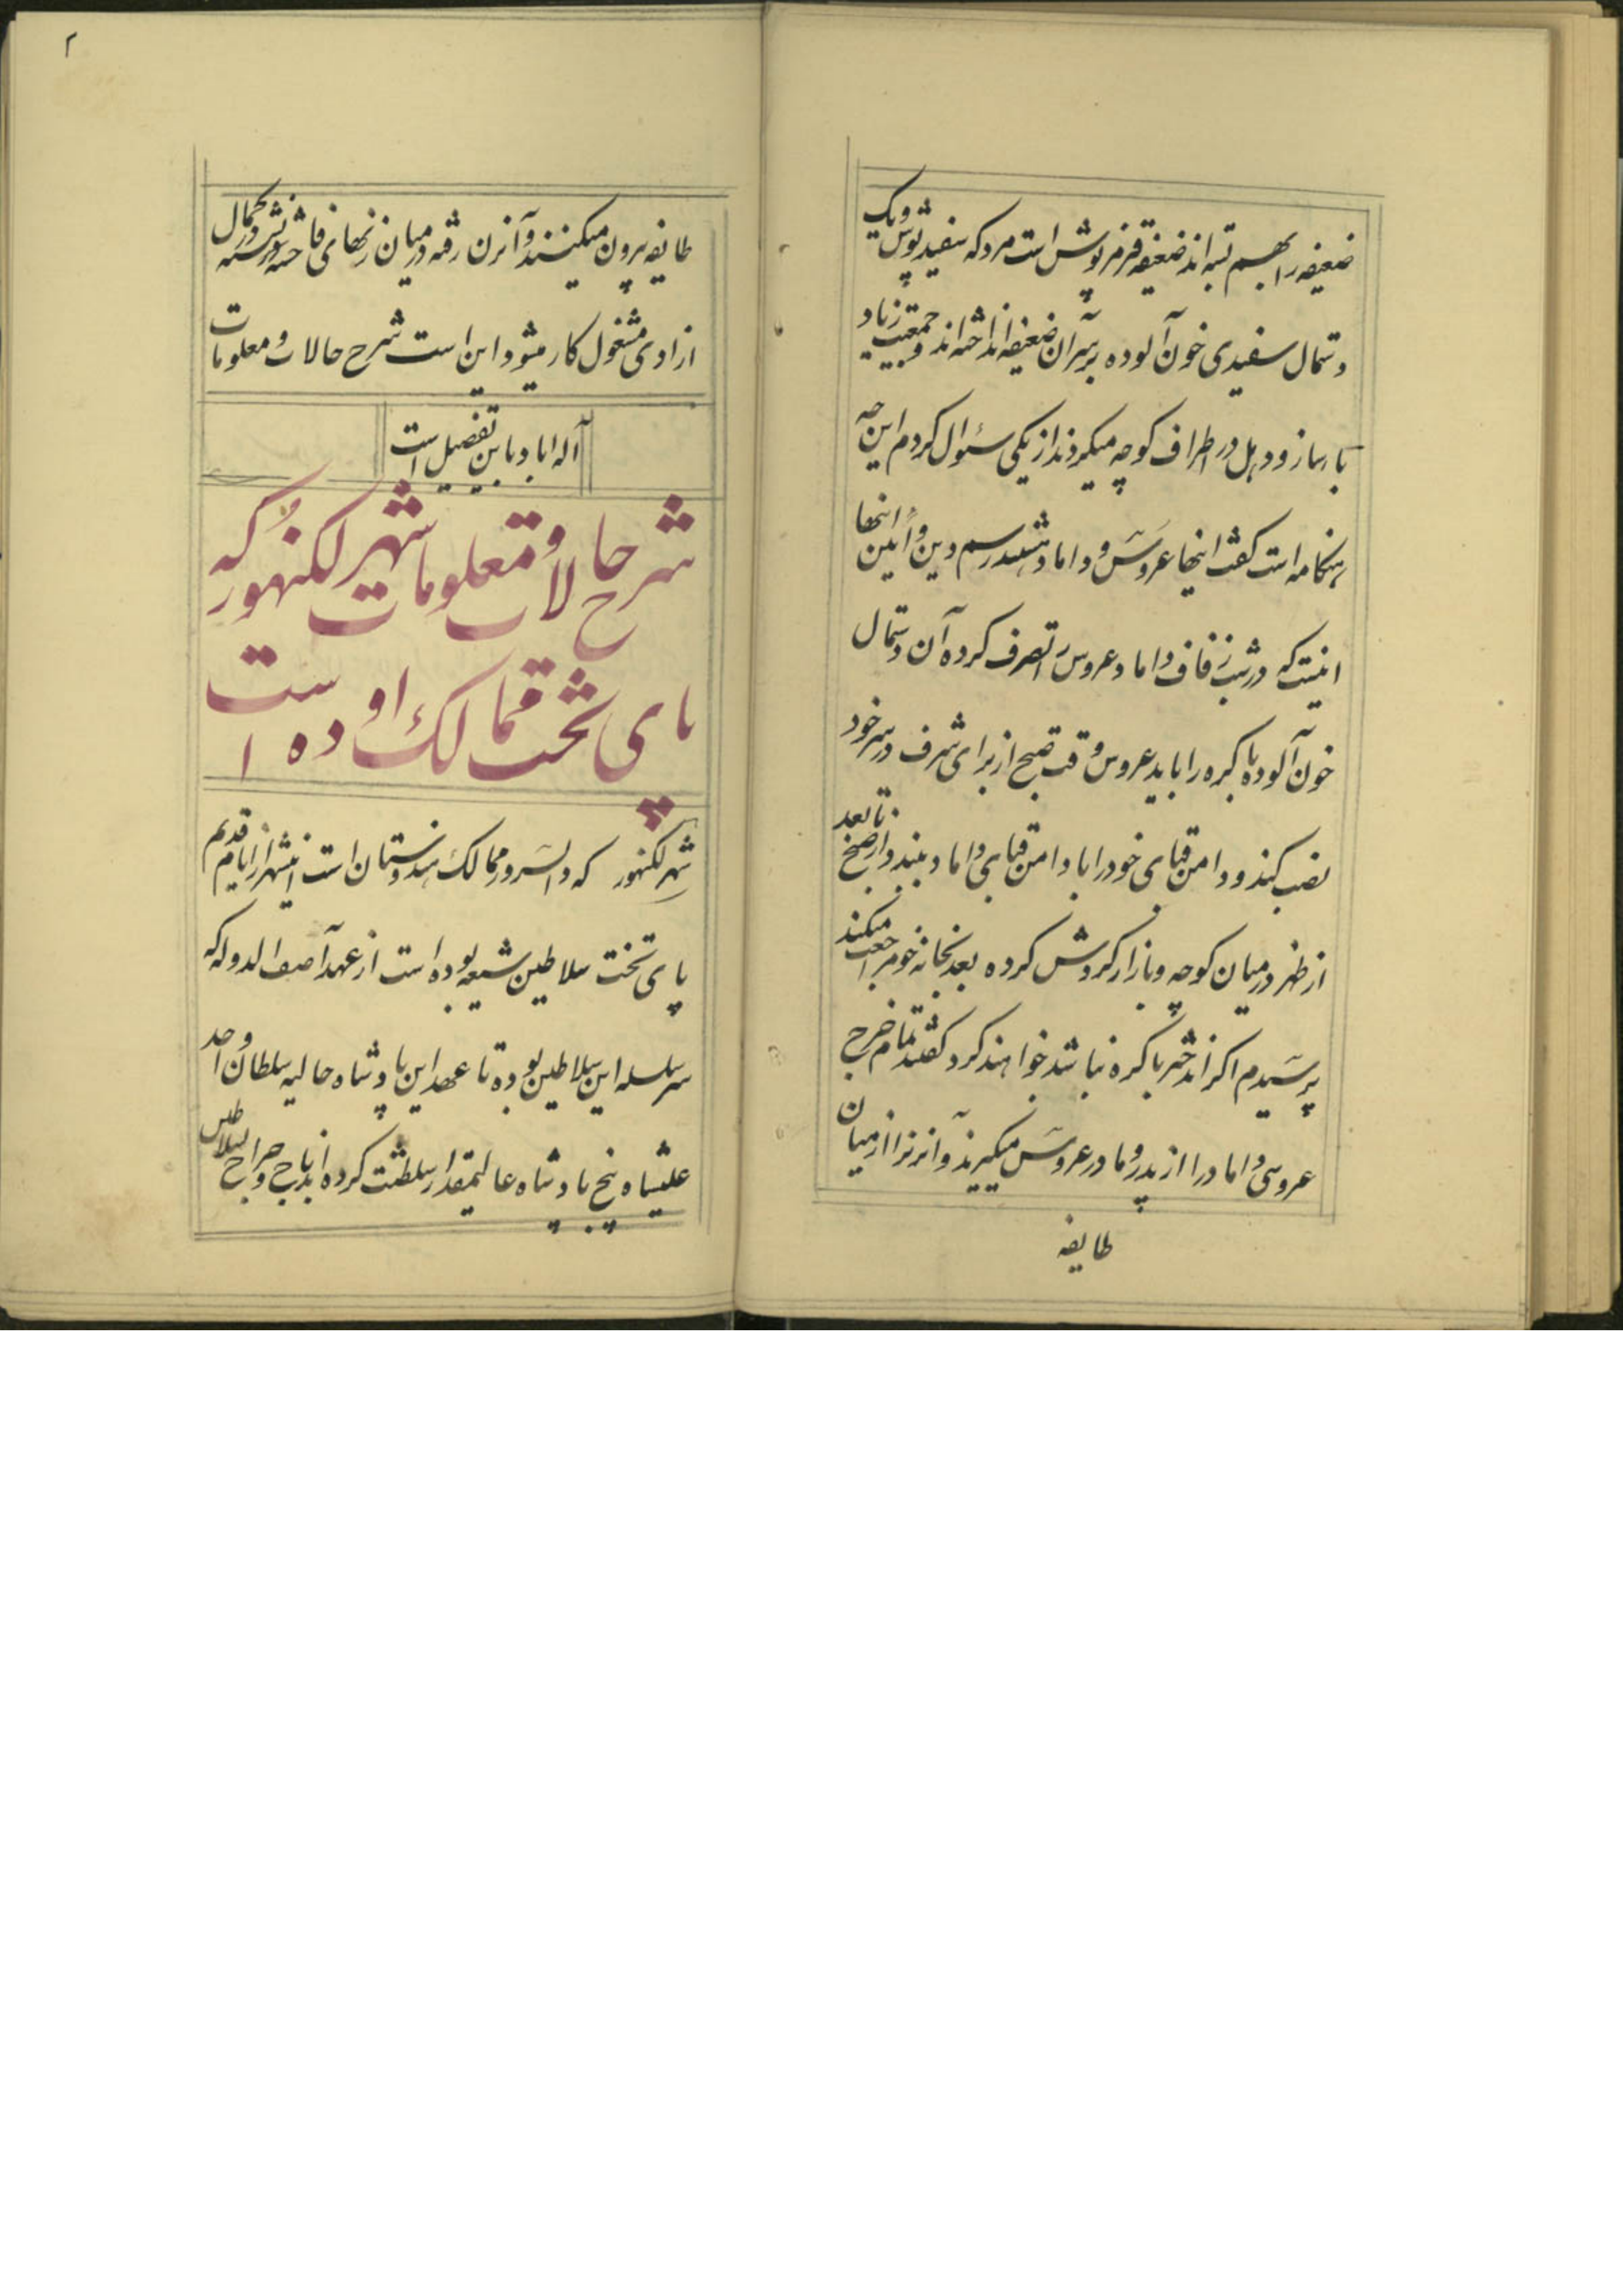 ضعیفه را بهم بسته اند ضعیفه قرمز پوش است مردکه سفید پوش و یک
دستمال سفیدی خون آلوده بر سر آن ضعیفه انداخته اند و جمعیت زیاد
با ساز و دهل در اطراف کوچه میکردند از یکی سئوال کردم این چه
هنکامه است کفت اینها عروس و داماد هستند رسم دین و آئین اینها
اینست که در شب زفاف داماد عروس را تصرف کرده آن دستمال
خون آلوده باکره را باید عروس وقت صبح از برای شرف در سر خود
نصب کند و دامن قبای خود را با دامن قبای داماد ببندد و از صبح تا بعد
از ظهر در میان کوچه و بازار کردش کرده بعد بخانه خود مراجعت میکند
پرسیدم اکر اندختر باکره نباشد چه خواهند کرد کفتند تمام خرج
عروسی داماد را از پدر و مادر عروس میکیرند و آنزنرا از میان
طایفه
۲
طایفه بیرون میکنند و آنزن رفته در میان زنهای فاحشه نشسته در کمال
ازادی مشغول کار میشود این است شرح حالات و معلومات
آله اباد باین تفصیل است
شرح حالات و معلومات شهر لکنهور که
پای تخت ممالک اوده است
شهر لکنهور که در ممالک هندوستان است اینشهر از ایام قدیم
پای تخت سلاطین شیعه بوده است از عهد آصف الدوله که
سر سلسله این سلاطین بوده تا عهد این پادشاه حالیه سلطان واجد
علیشاه پنج پادشاه عالیمقدار سلطنت کرده اند باج و خراج سلاطین